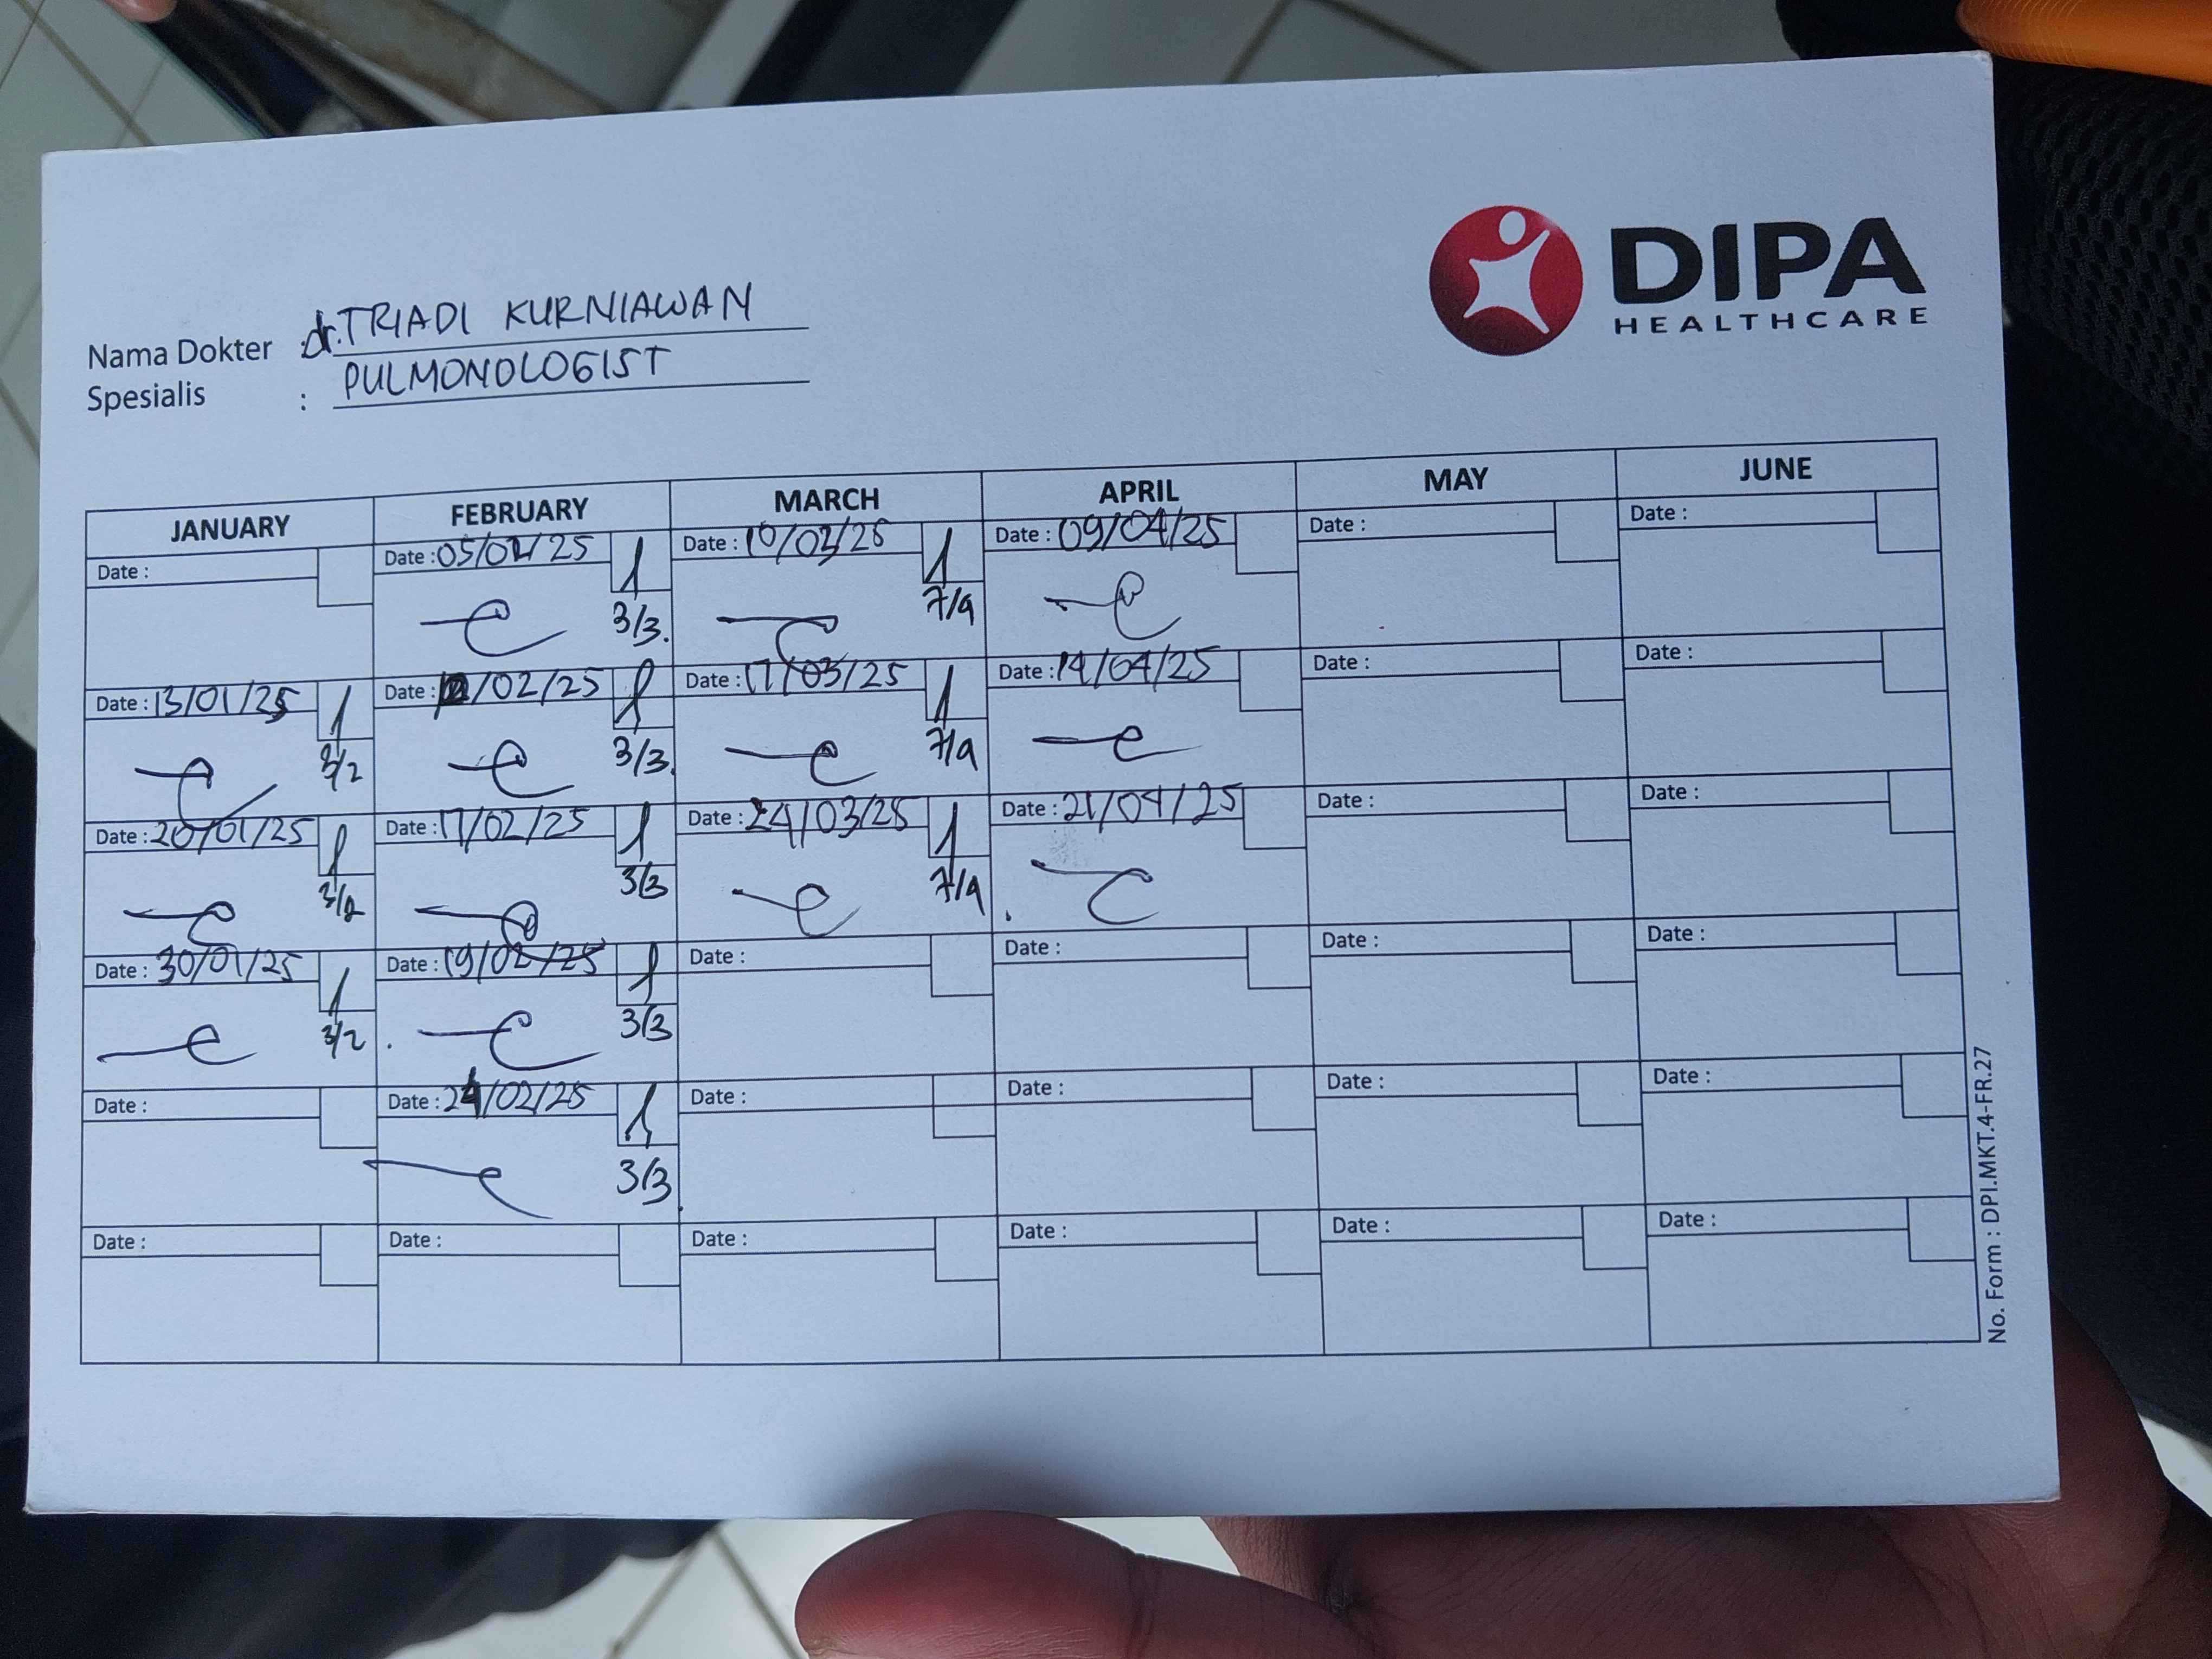 DIPA
HEALTHCARE
Nama Dokter : dr. TRIADI KURNIAWAN
Spesialis : PULMONOLOGIST
JANUARY FEBRUARY MARCH APRIL MAY JUNE
Date : Date : 05/02/25 Date : 10/03/25 Date : 09/04/25 Date : Date :
3/3. 7/4
Date : 13/01/25 Date : 12/02/25 Date : 17/03/25 Date : 14/04/25 Date : Date :
3/2 3/3. 7/4
Date : 20/01/25 Date : 17/02/25 Date : 24/03/25 Date : 21/04/25 Date : Date :
3/2 3/3 7/4
Date : 30/01/25 Date : 19/02/25 Date : Date : Date : Date :
3/2 3/3
Date : Date : 24/02/25 Date : Date : Date : Date :
3/3
Date : Date : Date : Date : Date : Date :
No. Form : DPI.MKT.4-FR.27